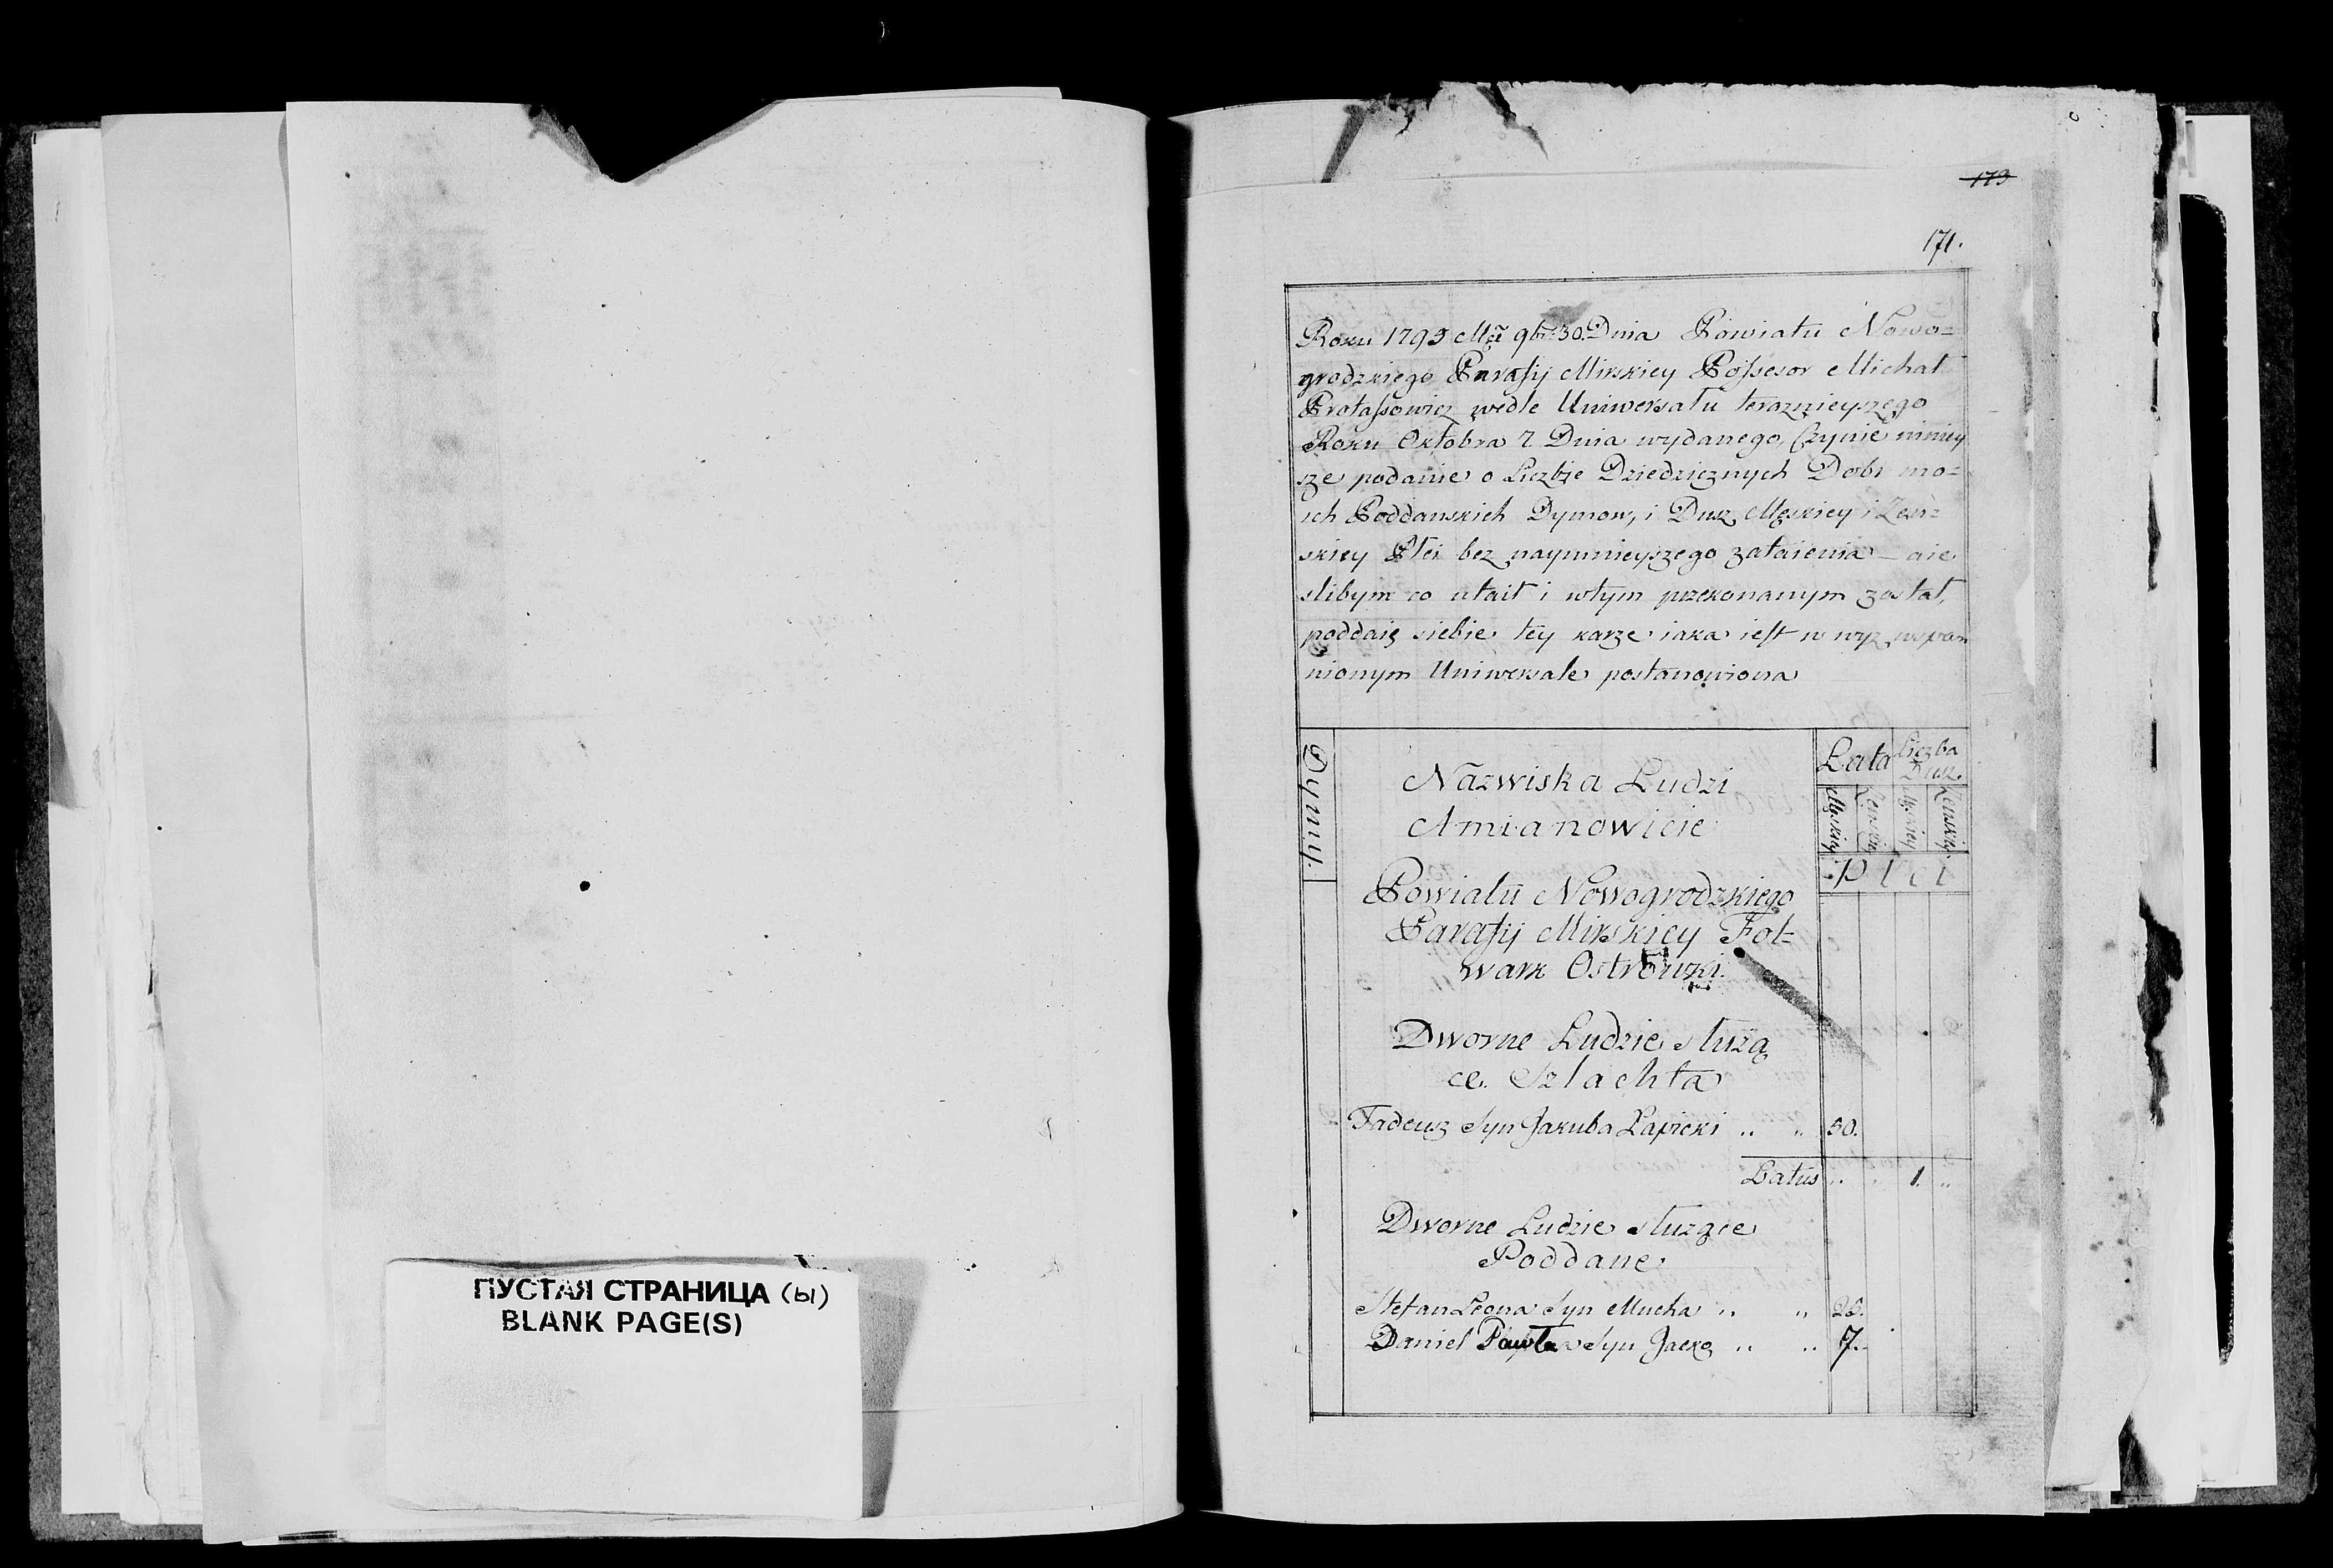 ПУСТАЯ СТРАНИЦА (ы)
BLANK PAGE(S)
173
171.
Roku 1795 Mca 9br 30. Dnia Powiatu Nowo=
grodzkiego Parafij Mirskiey Possesor Michał
Protassowicz wedle Uniwersału teraznieyszego
Roku Oktobra 7 Dnia wydanego, Czynie niniey
sze podanie o Liczbie Dziedzicznych Dobr mo=
ich Poddanskich Dymow, i Dusz Męskiey i Zeń=
skiey Płci bez naymnieyszego zataienia aie
slibym co ataił i wtym przekonanym został,
poddaię siebie tey karze iaka iest w wyz wspom
nionym Uniwersale postanowiona
Dymy.
Nazwiska Ludzi
Amianowicie
Lata
Liczba
Dusz.
Męskiey
Zenskiey
Męskiey
Zenskiey
Płci
Powiatu Nowogrodzkiego
Parafij Mirskiey Fol=
wark Ostrowki
Dworne Ludzie słuzą
ce. Szlachta
Tadeusz Syn Jakuba Łapicki .. .. 50.
Latus .. .. 1. ..
Dworne Ludzie słuzące
Poddane.
Stefan Leona Syn Mucha .. ..
Daniel Pawła Syn Jacko .. .. 7.